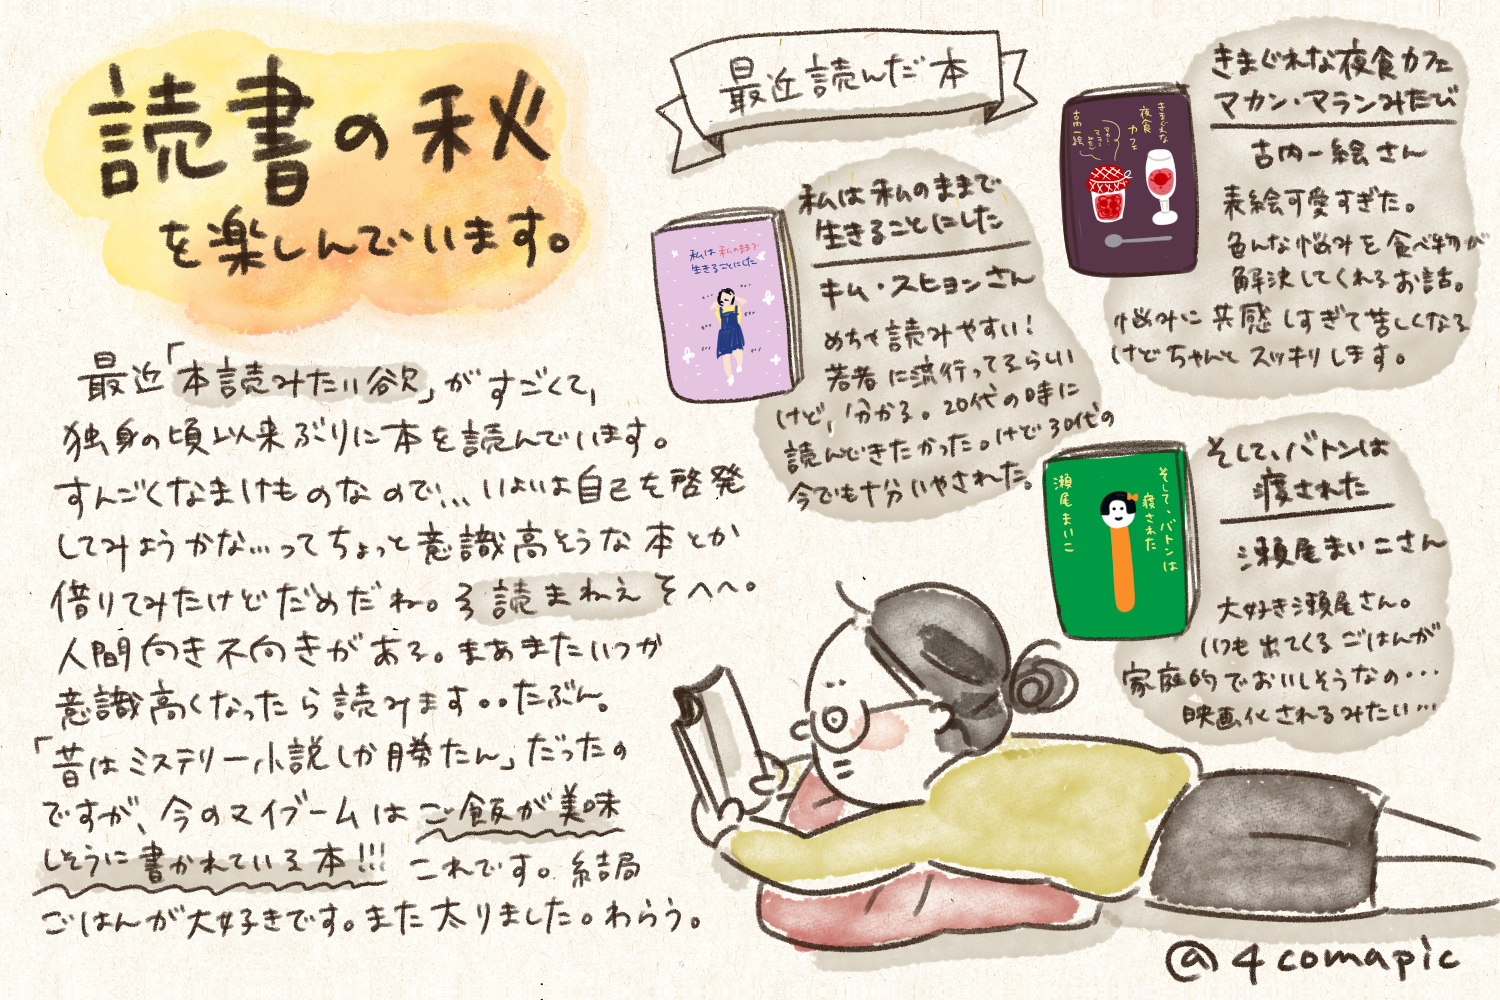 読書の秋
を楽しんでいます。
最近「本読みたい欲」がすごくて、
独身の頃以来ぶりに本を読んでいます。
すんごくなまけものなので、、、いよいよ自己を啓発
してみようかな…ってちょっと意識高そうな本とか
借りてみたけどだめだね。ろ読まねえそへへ。
人間向き不向きがある。まあまたいつか
意識高くなったら読みます。。たぶん。
「昔はミステリー小説しか勝たん」だったの
ですが、今のマイブームはご飯が美味
しそうに書かれている本!!!これです。結局
ごはんが大好きです。また太りました。わらう。
最近読んだ本
私は私のままで
生きることにした
私は私のままで
生きることにした
キム・スヒョンさん
めちゃ読みやすい!
若者に流行ってるらしい
けど、分かる。20代の時に
読んできたかった。けど30代の
今でも十分いやされた。
きまぐれな
夜食
カフェ
マカン・マラン
みたび
古内一絵
きまぐれな夜食カフェ
マカン・マランみたび
古内一絵さん
表絵可愛すぎた。
色んな悩みを食べ物が
解決してくれるお話。
悩みに共感しすぎて苦しくなる
けどちゃんとスッキリします。
そして、バトンは
渡された
瀬尾まいこ
そして、バトンは
渡された
瀬尾まいこさん
大好き瀬尾さん。
いつも出てくるごはんが
家庭的でおいしそうなの・・・
映画化されるみたい…
@4comapic